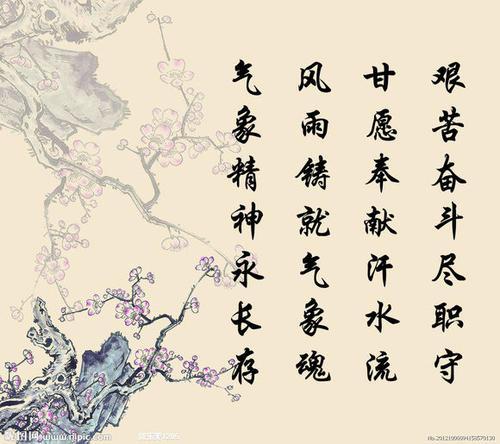 艰苦奋斗尽职守
甘愿奉献汗水流
风雨铸就气象魂
气象精神永长存
www.nipic.com